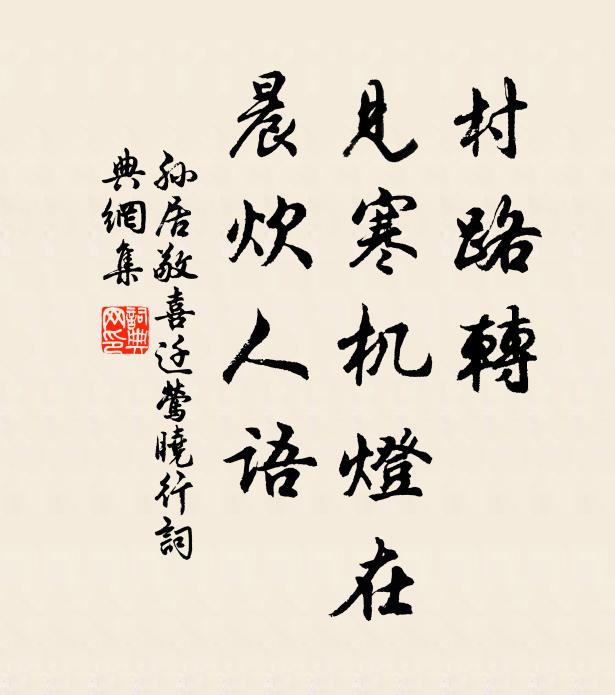 村路轉
見寒机燈在
晨炊人语
孫居敬喜迁鶯曉行詞
典網集
詞典
网印